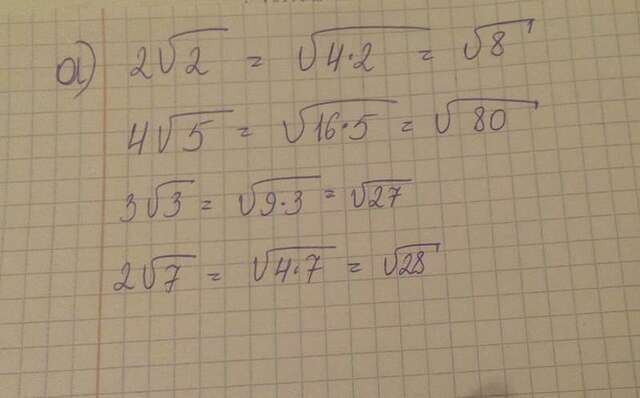 а) 2√2 = √4·2 = √8
4√5 = √16·5 = √80
3√3 = √9·3 = √27
2√7 = √4·7 = √28